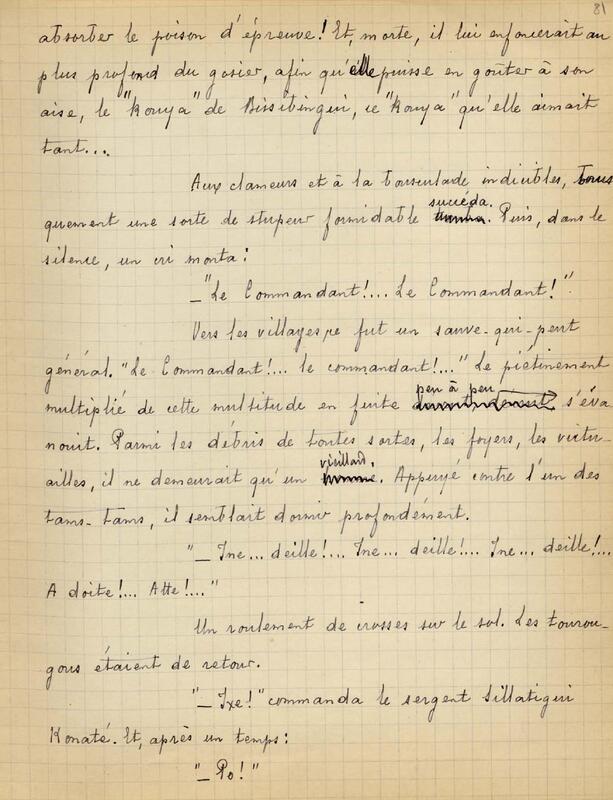 81
absorber le poison d'épreuve! Et, morte, il lui enfoncerait au
plus profond du gosier, afin qu'elle puisse en goûter à son
aise, le "Kouya" de Bissibingui, ce "Kouya" qu'elle aimait
tant...
Aux clameurs et à la bousculade indicibles, brus
quement une sorte de stupeur formidable succéda. Puis, dans le
silence, un cri monta:
_"Le Commandant!... Le Commandant!"
Vers les villages ce fut un sauve-qui-peut
général. "Le Commandant!... le commandant!..." Le piétinement
multiplié de cette multitude en fuite peu à peu s'éva
nouit. Parmi les débris de toutes sortes, les foyers, les victu-
ailles, il ne demeurait qu'un vieillard. Appuyé contre l'un des
tams-tams, il semblait dormir profondément.
"_Ine... deille!... Ine... deille!... Ine... deille!...
A doite!... Atte!..."
Un roulement de crosses sur le sol. Les tourou-
gous étaient de retour.
"_Ixe!" commanda le sergent Sillatigui
Konaté. Et, après un temps:
"_Po!"